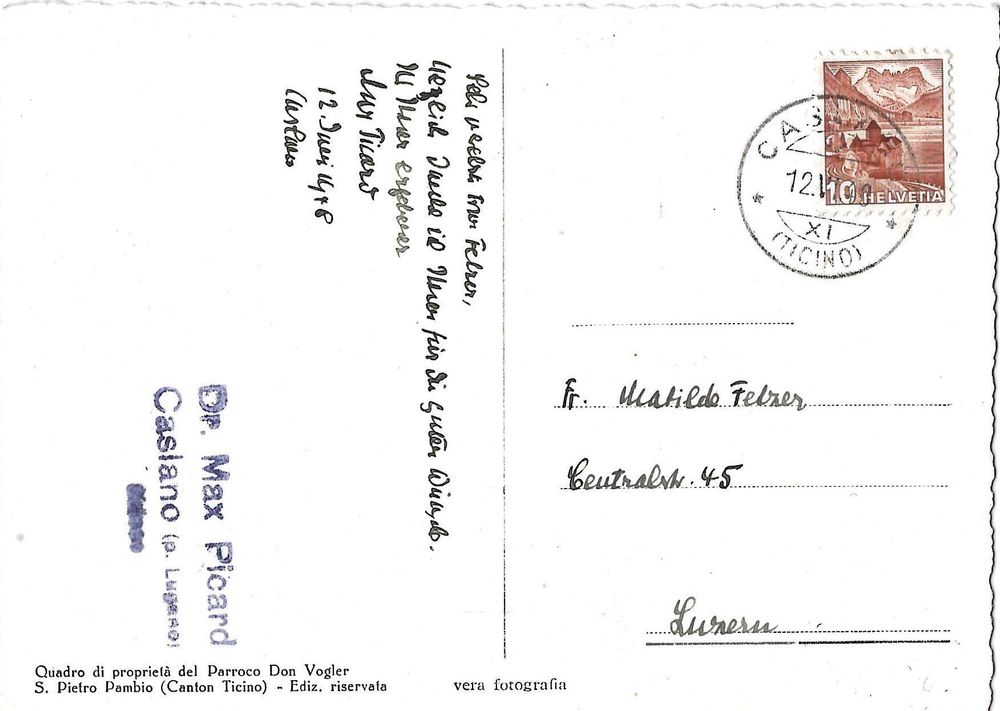 Sehr verehrte Frau Felzer,
herzlich danke ich Ihnen für die guten Wünsche.
Ihr Ihnen ergebener
Max Picard
12. Juni 1948
Caslano
Dr. Max Picard
Caslano (p. Lugano)
HELVETIA
10
CASLANO
12.VI.48
XI
(TICINO)
Fr. Matilde Felzer
Centralstr. 45
Luzern
Quadro di proprietà del Parroco Don Vogler
S. Pietro Pambio (Canton Ticino) - Ediz. riservata
vera fotografia